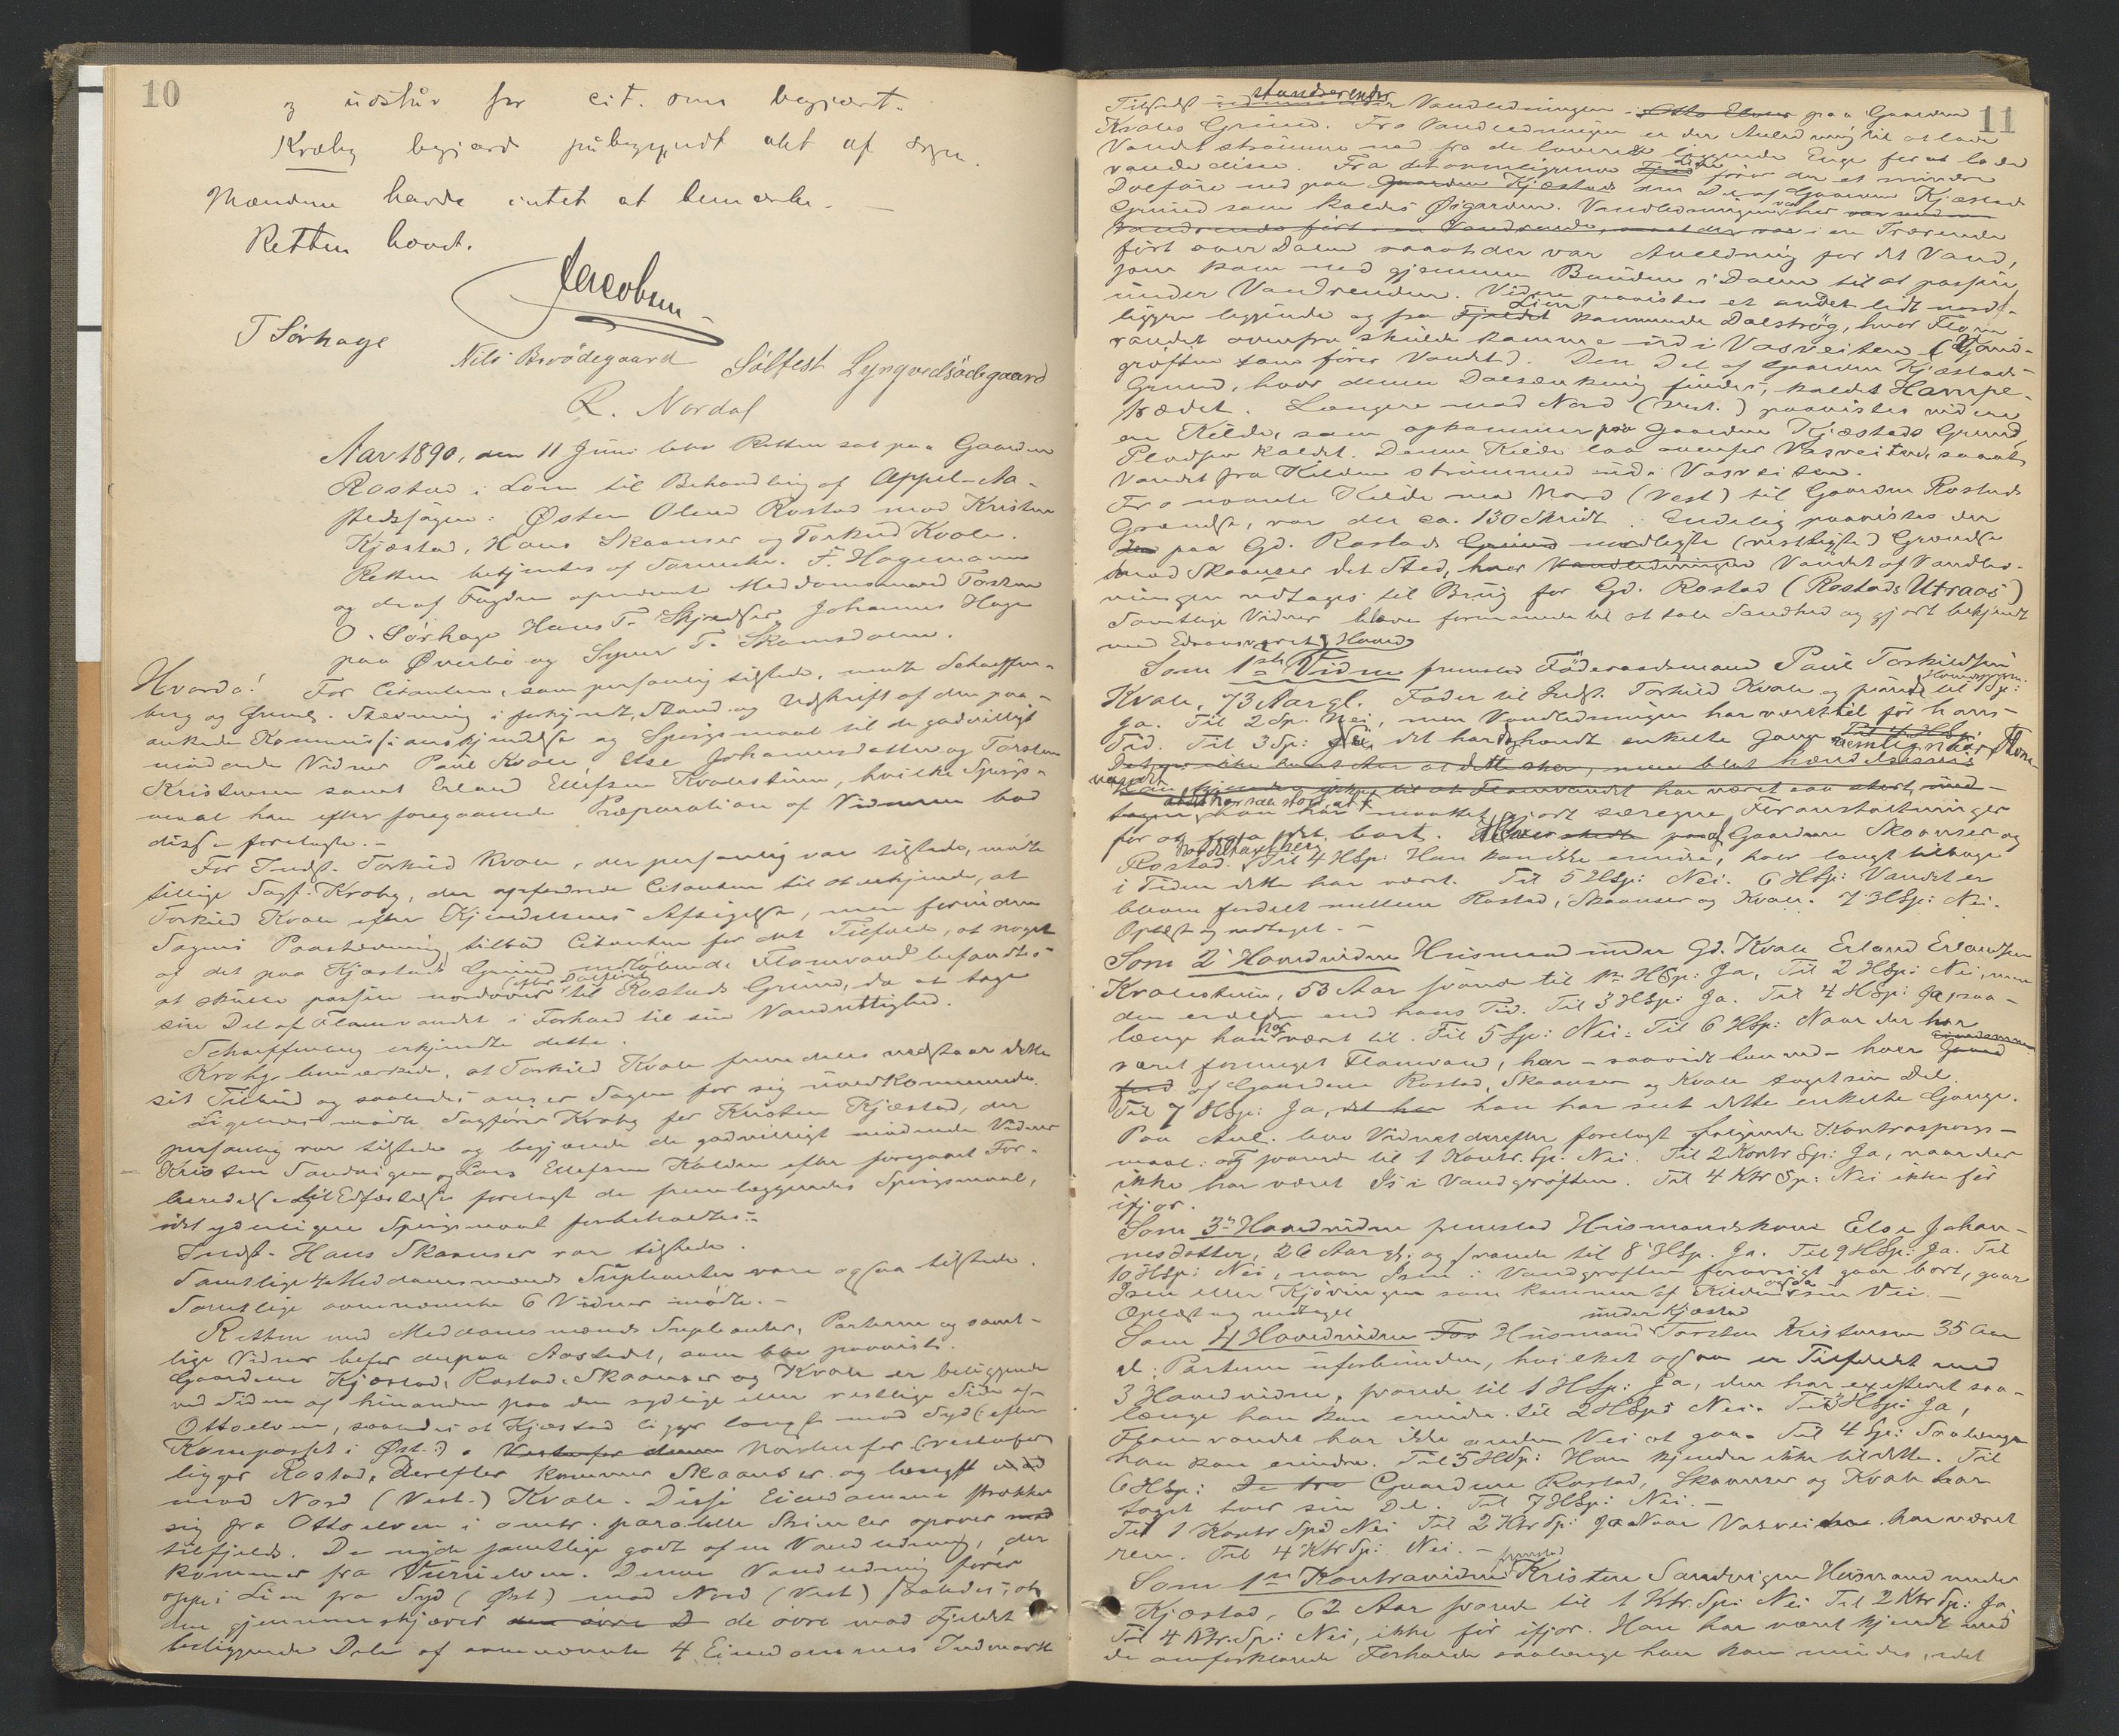 10
og udstår for cit. som begjært.
Kræby begjærd påbegyndt akt af Sagen.
Mændene havde intet at bemærke. —
Retten hævet.
Jacobsen
T Sørhage
Nils Brødegaard Sølfest Lyngvedsødegaard
R. Nordal
Aar 1890, den 11 Juni blev Retten sat paa Gaarden
Rostad i Lom til Behandling af Appel-Aa-
stedssagen: Østen Olsen Rostad mod Kristen
Kjæstad, Hans Skaanser og Torkild Kvale.
Retten betjentes af Sorenskr. F. Hagemann
og de af Fogden opnævnte Meddomsmænd Torsten
O. Sørhage Hans T. Johannes Hage
paa Øverbø og Syver T. Skamsdalen.
Hvorda! For Citanten, som personlig tilstede, mødte Schaffen-
berg og freml. Stævning i forkyndt Stand og Udskrift af den paa-
ankede Kommissionskjendelse og Spørgsmaal til de godvilligt
mødende Vidner Paul Kvale Else Johannesdatter og Torsten
Kristensen samt Erland Ellefsen Kvalestuen, hvilke Spørgs-
maal han efter foregaaende Præparation af Vidnerne bad
disse forelagte. —
For Indst. Torkild Kvale, der personlig var tilstede, mødte
tillige Sagf. Kroby, der opfordrede Citanten til at erkjende, at
Torkild Kvale efter Kjendelsens Afsigelse, men forinden
Sagens Paastævning tilbød Citanten for det Tilfælde, at noget
af det paa Kjæstads Grund nedløbende Flomvand befandtes
(efter Dalføret)
at skulle passere nordover til Rostads Grund, da at tage
sin Del af Flomvandet i Forhold til sin Vandrettighed.
Schaffenberg erkjendte dette.
Kroby bemærkede, at Torkild Kvale fremdeles vedstaar dette
sit Tilbud og saaledes anser Sagen for sig uvedkommende.
Ligeledes mødte Sagfører Kroby for Kristen Kjæstad, der
personlig var tilstede og begjærede de godvilligt mødende Vidner
— Kristen Sandvigen og Lars Ellefsen Kolden efter foregaaet For-
beredelse til Edfæstelse forelagt de fremlæggendes Spørgsmaal,
idet yderligere Spørgsmaal forbeholdtes. —
Indst. Hans Skaanser var tilstede.
Samtlige 4 Meddomsmænds Supleanter vare ogsaa tilstede.
Samtlige ovennævnte 6 Vidner mødte. —
Retten med Meddomsmænds Supleanter, Parterne og samt-
lige Vidner befor derpaa Aastedet, som blev paavist.
Gaardene Kjæstad, Rostad, Skaanser og Kvale er beliggende
ved Siden af hinanden paa den sydlige eller vestlige Side af
Ottaelven, saaledes at Kjæstad ligger længst mod Syd (: efter
Kompasset i Øst:). Vestenfor denne Nordenfor (vestenfor)
ligger Rostad, Derefter kommer Skaanser og længst mod
mod Nord (Vest.) Kvale. Disse Eiendomme strækker
sig fra Ottaelven i omtr. paralelle Strimler opover mod
tilfjelds. De nyde samtlige godt af en Vandledning, der
kommer fra Denne Vandledning fører
oppe i Lien fra Syd (Øst) mod Nord (Vest) saaledes, at
den gjennemskjærer den øvre D de øvre mod Fjeldet
beliggende Dele af ovennævnte 4 Eiendommes Indmark
11
Vandledningen Otta Elven paa Gaarden
Kvales Grund. Fra Vandledningen er der Anledning til at lade
Vandet strømme ned fra de lavere liggende Enge for at lade
vande disse. Fra det ovenliggende Fjeld Lien fører der et mindre
Dalføre ned paa Gaarden Kjæstads den Del af Gaarden Kjæstads
Grund som kaldes Øigarden. Vandledningen var her var
i en Trærende
ført over Dalen saaat der var Anledning for det Vand,
som kom ned gjennem Bunden i Dalen til at passere
under Vandrenden. Videre paavistes et andet lidt nord-
ligere liggende og fra Fjeldet Lien kommende Dalstrøg, hvor Flom-
vandet ovenfra skulde komme ind i Vasveiten (Vand-
grøften som fører Vandet). Den Del af Gaarden Kjæstads
Grund, hvor denne Dalsænkning findes, kaldes Hampe-
trædet. Længere mod Nord (Vest.) paavistes videre
en Kilde, som opkommer paa Gaarden Kjæstads Grund,
Pladsen kaldet. Denne Kilde laa ovenfor Vasveiten, saaat
Vandet fra Kilden strømmed ind i Vasveiten.
Fra nævnte Kilde mod Nord (Vest) til Gaarden Rostads
Grændse, var der ca. 130 Skridt. Endelig paavistes der
den paa Gd. Rostads Grund nordligste (vestligste) Grændse
mod Skaanser det Sted, hvor Vandledningen Vandet af Vandled-
ningen udtages til Brug for Gd. Rostad (Rostads Utraas)
Samtlige Vidner bleve formanede til at tale Sandhed og gjort bekjendt
med Edsansvaret.
Som 1ste Vidne fremstod Føderaadsmand Paul Torkildsen
Kvale, 73 Aar gl. Fader til Indst. Torkild Kvale og svared til Sp:
Ja. Til 2 Sp. Nei, men Vandledningen har været til før hans
Tid. Til 3 Sp: Ja, det har hændt enkelte Gange
han har maattet gjort særegne Foranstaltninger
for at faa det bort. Gaardene Skaanser og
Rostad. Til 4 HSp: Han kan ikke erindre, hvor langt tilbage
i Tiden dette har været. Til 5 HSp: Nei. 6 HSp: Vandet er
bleven fordelt mellem Rostad, Skaanser og Kvale. 7 HSp: Nei.
Oplæst og vedtaget. —
Som 2 Hovedvidne Husmand under Gd. Kvale Erland Erlandsen
Kvalestuen, 53 Aar svared til 1ste HSp: Ja, Til 2 HSp: Nei, men
den er ældre end hans Tid. Til 3 HSp: Ja. Til 4 HSp: Ja, saa-
længe han har været til. Til 5 Sp: Nei. Til 6 HSp: Naar der har
været formeget Flomvand, har – saavidt han ved – hver Gaard
af Gaardene Rostad, Skaanser og Kvale taget sin Del.
Til 7 HSp: Ja, det har han har seet dette enkelte Gange.
Paa Anl. blev Vidnet derefter forelagt følgende Kontraspørgs-
maal: og svarede til 1 Kontr. Sp. Nei. Til 2 Kontr Sp: Ja, naar der
ikke har været Is i Vandgrøften. Til 4 Ktr Sp: Nei ikke før
ifjor.
Som 3de Hovedvidne fremstod Husmandskone Else Johan-
nesdatter, 26 Aar gl. og svarede til 8 HSp. Ja. Til 9 HSp: Ja. Til
10 HSp: Nei, naar Isen i Vandgrøften forøvrigt gaar bort, gaar
Isen eller Kjøvingen som kommer af Kilden ogsaa sin Vei. —
Oplæst og vedtaget
under Kjæstad
Som 4 Hovedvidne Tor Husmand Torsten Kristensen 35 Aar
gl. Parterne uforbunden, hvilket ogsaa er Tilfældet med
3 Hovedvidne, svarede til 1 HSp: Ja, den har existeret saa-
længe han kan erindre. til 2 HSp: Nei. Til 3 HSp: Ja,
Flomvandet har ikke anden Vei at gaa. Til 4 Sp: Saalænge
han kan erindre. Til 5 HSp: Han kjender ikke til dette. Til
6 HSp: De tre Gaardene Rostad, Skaanser og Kvale har
taget hver sin Del. Til 7 HSp: Nei. —
Til 1 Kontr Sp: Nei Til 2 Ktr Sp: Ja Naar Vasveiten har været
ren. Til 4 Ktr Sp: Nei. —
fremstod
Som 1ste Kontravidne Kristen Sandvigen Husmand under
Kjæstad, 62 Aar svarede til 1 Ktr. Sp: Nei Til 2 Ktr Sp: Ja,
Til 4 Ktr. Sp: Nei, ikke før ifjor. Han har været kjendt med
de omforklarede Forholde saalænge han kan mindes, idet